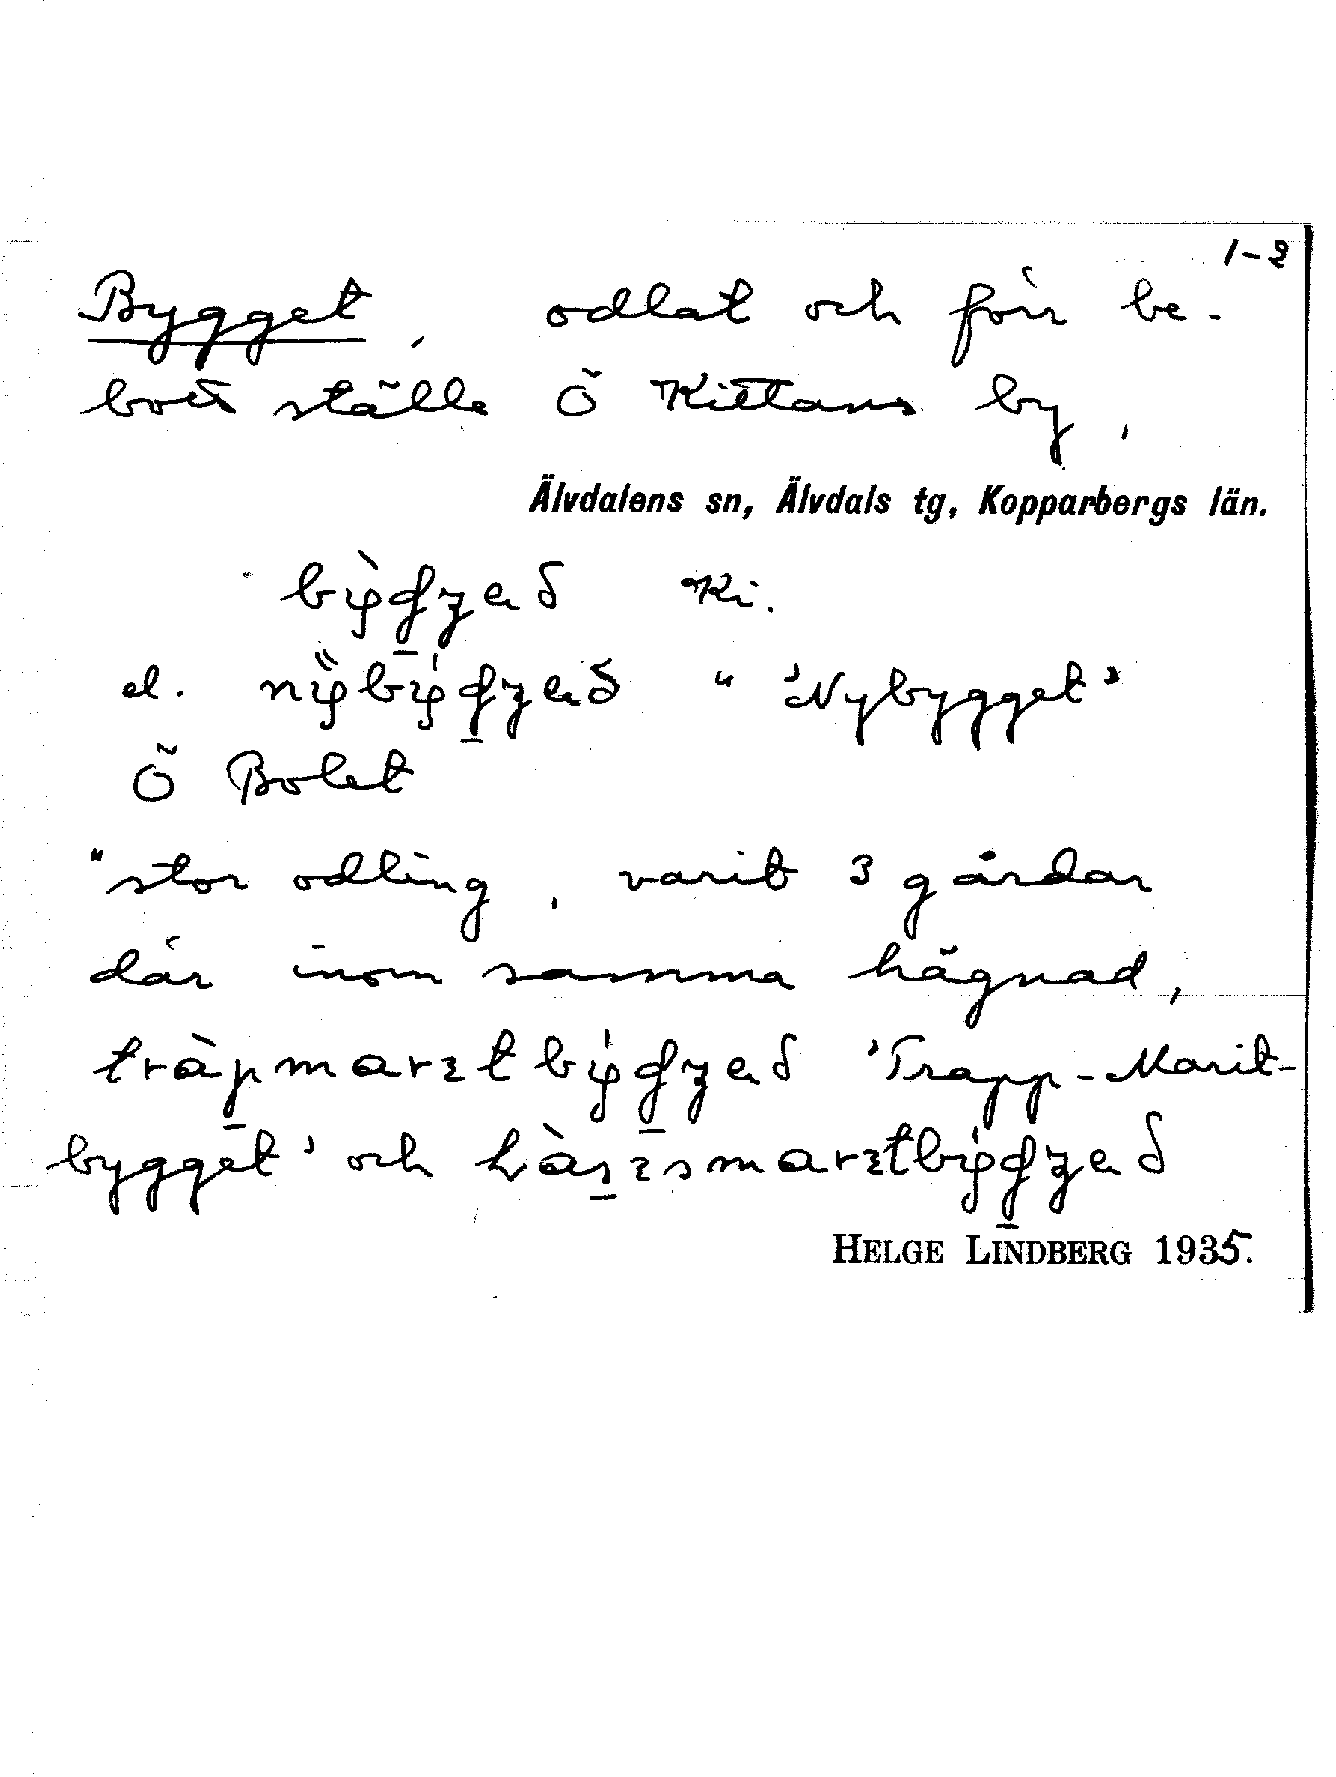 1-2
Bygget, odlat och förr be-
bott ställe Ö Kittans by,
Älvdalens sn, Älvdals tg, Kopparbergs län.
Ki.
el. " 'Nybygget'
Ö Bolet
"stor odling, varit 3 gårdar
där inom samma hägnad,
'Trapp-Marit-
bygget' och
HELGE LINDBERG 1935.